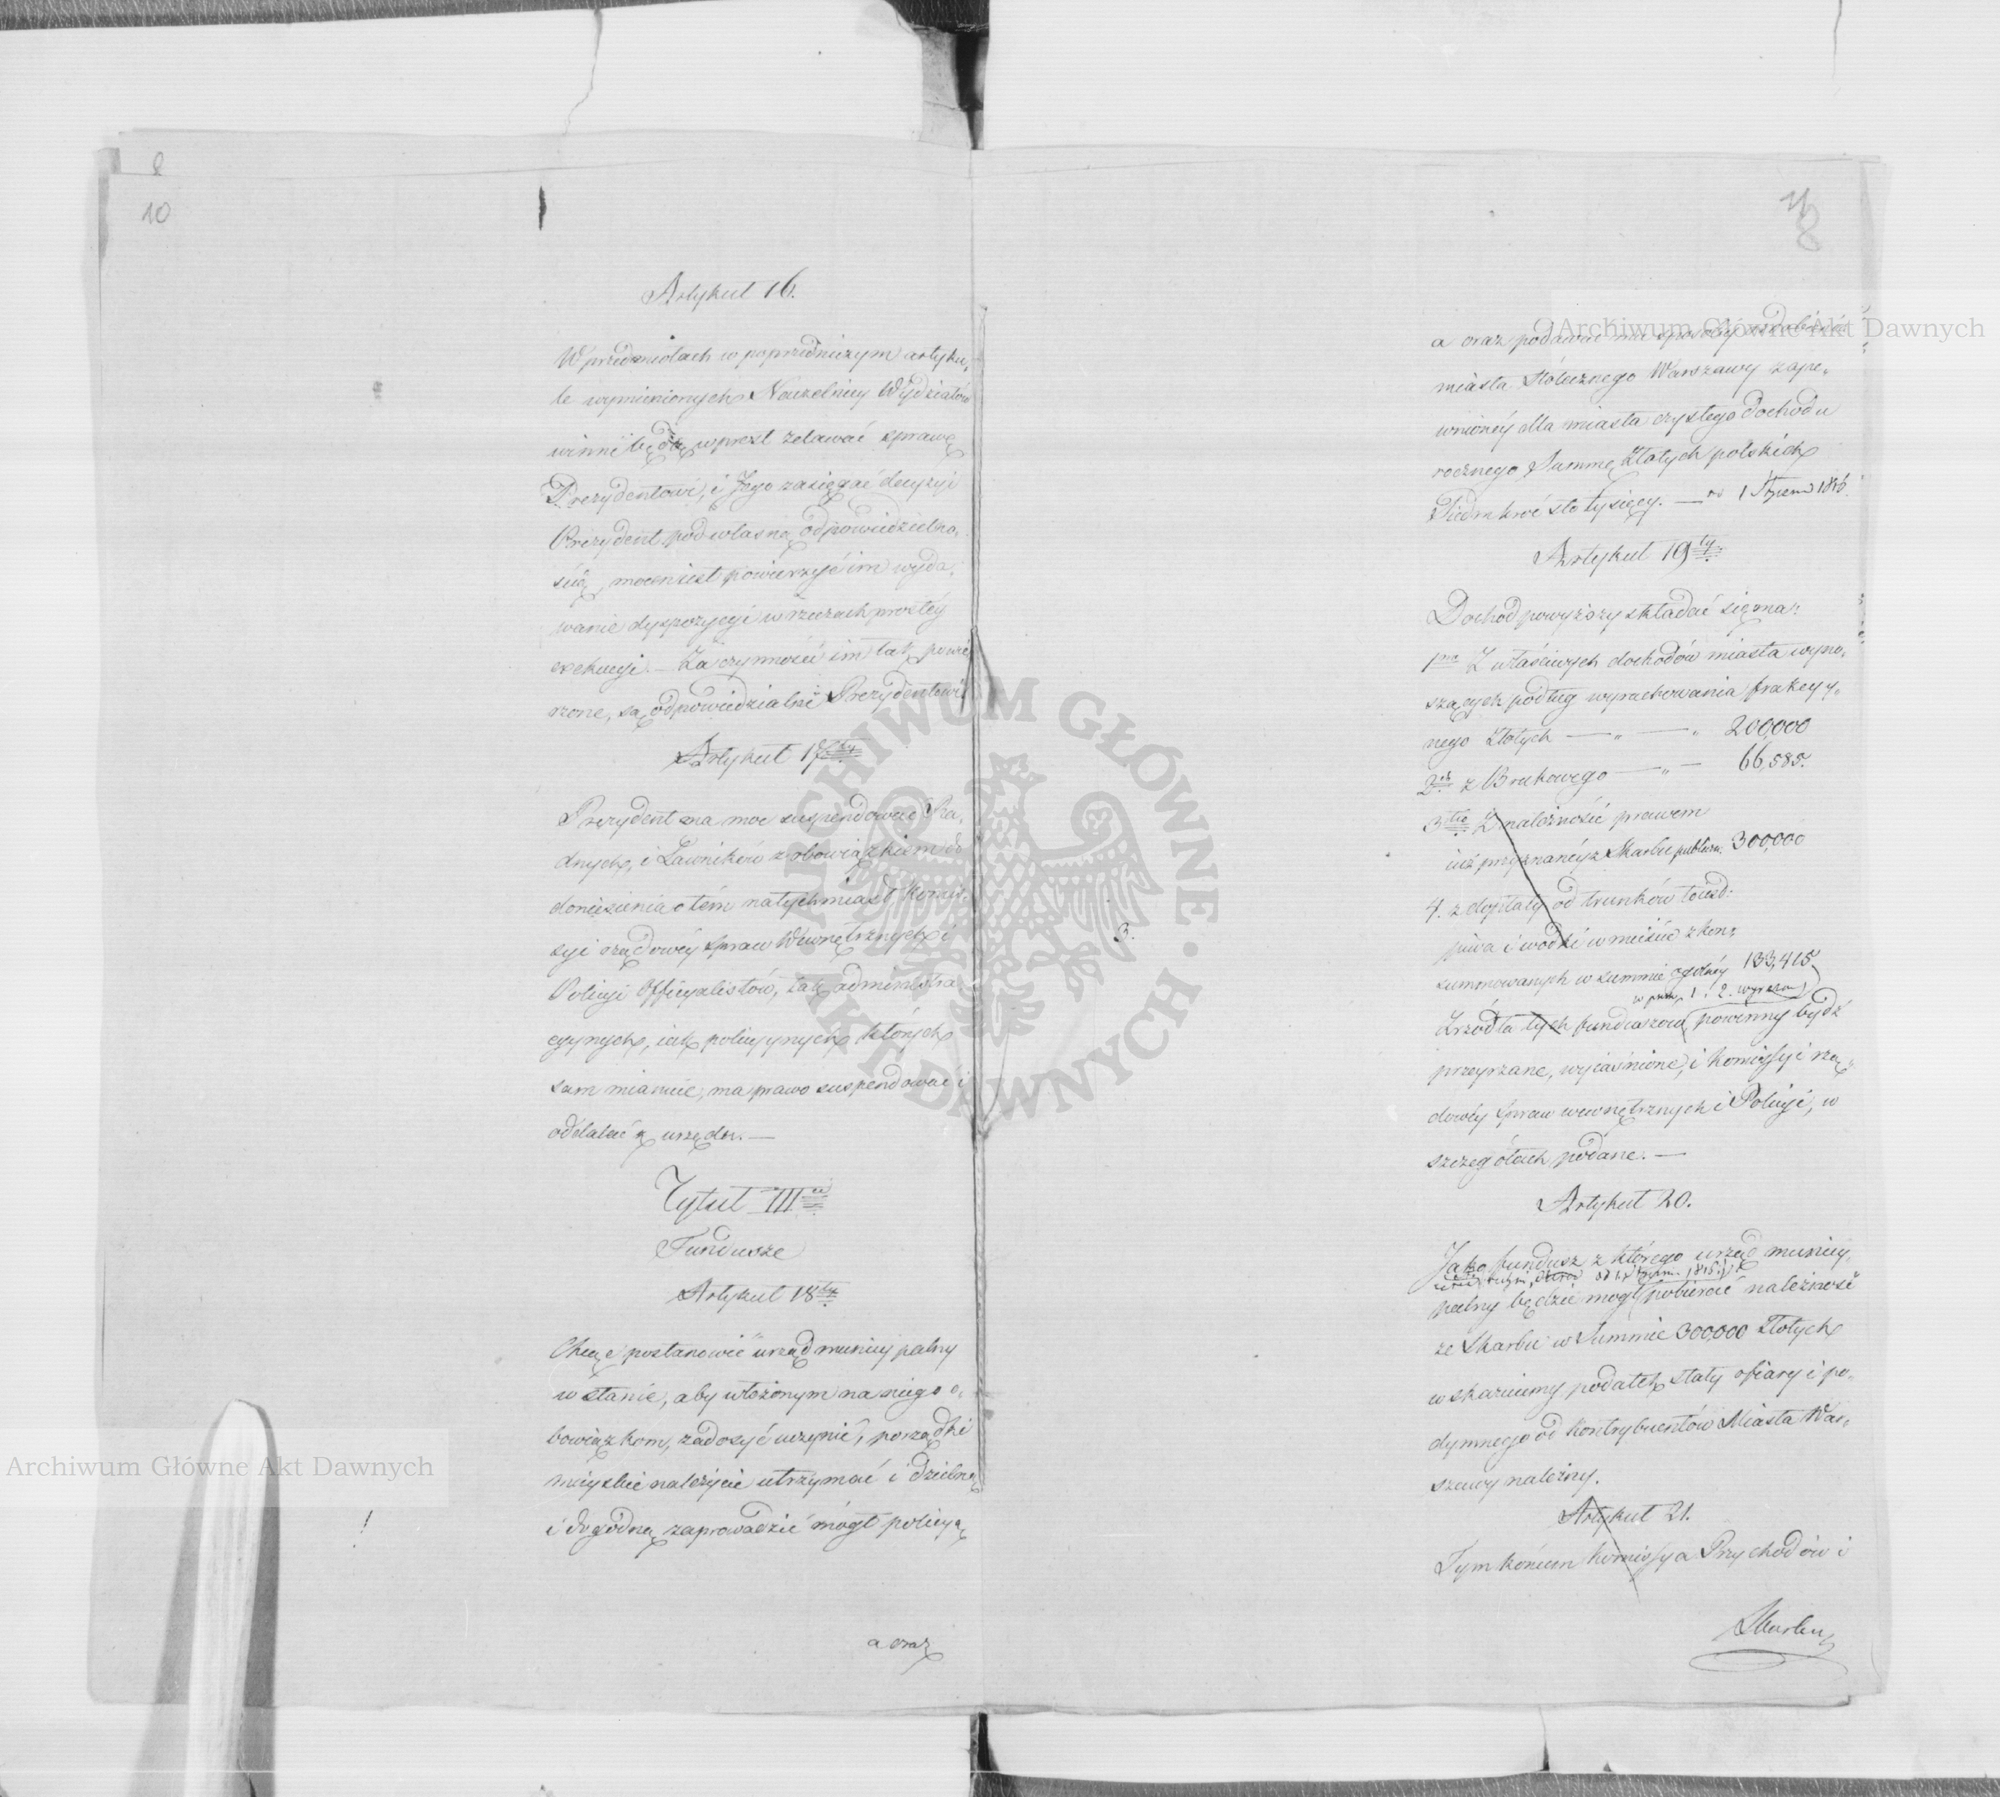 8
10
Artykuł 16.
W przedmiotach w poprzedniczym artyku,
le wymienionych Naczelnicy Wydziałów
winni będą wprost zdawać sprawę
Prezydentowi, i Jego zasięgać decyzyi
Prezydent pod własną odpowiedzialno,
ścią, mocen iest powierzyć im wyda,
wanie dyspozycyi w rzeczach prostéy
exekucyi. — Za czynności im tak powie,
rzone, są odpowiedzialni Prezydentowi.
Artykuł 17ty
Prezydent ma moc suspendować Ra,
dnych, i Ławników z obowiązkiem do
doniesienia o tém natychmiast Komis,
syi rządowéy Spraw Wewnętrznych i
Policyi Officyalistów, tak administra
cyinych, iak policyynych których
sam mianuie, ma prawo suspendować i
oddalać z urzędu. —
Tytuł III ci
Fundusze
Artykuł 18ty
Chcąc postanowić urząd municypalny
w stanie, aby włożonym na niego o,
bowiązkom, zadosyć uczynić, porządki
mieyskie należycie utrzymać i dzielną
i dogodną zaprowadzić mógł policyą
!
a oraz
11
8
a oraz podawać mu sposoby ozdobienia
miasta Stołecznego Warszawy zape,,
wnionéy dla miasta czystego dochodu
rocznego Summę Złotych polskich
Siedmkroć sto tysięcy. — od 1 Stycznia 1816.
Artykuł 19ty
Dochód powyższy składać się ma:
1mo Z właściwych dochodów miasta wyno,
szących podług wyrachowania frakcyy,
nego Złotych — „ — „ 200,000
2do z Brukowego — „ — 66,585.
3tio Z należności prawem
iuż przyznanéy z Skarbu publicz. 300,000
4. z dopłaty od trunków toiest:
piwa i wódki w mieście z kon,
summowanych w summie ogólnéy 133,415
w punk. 1 i 2. wyrażon.
Zrzódła tych funduszów powinny bydź
przeyrzane, wyiaśnione, i Komissyi rzą,,
dowéy Spraw wewnętrznych i Policyi, w
szczegółach podane. —
3.
Artykuł 20.
Jako fundusz z którego urząd municy,
palny będzie mógł pobierać należność
ze Skarbu w Summie 300,000 Złotych
wskazuiemy podatek stały ofiary i po,,
dymnego od Kontrybuentów Miasta War,,
szawy należny.
Artykuł 21.
Tym końcem Komissya Przychodów i
Skarbu
Archiwum Główne Akt Dawnych
Archiwum Główne Akt Dawnych
ARCHIWUM GŁÓWNE · AKT DAWNYCH ·